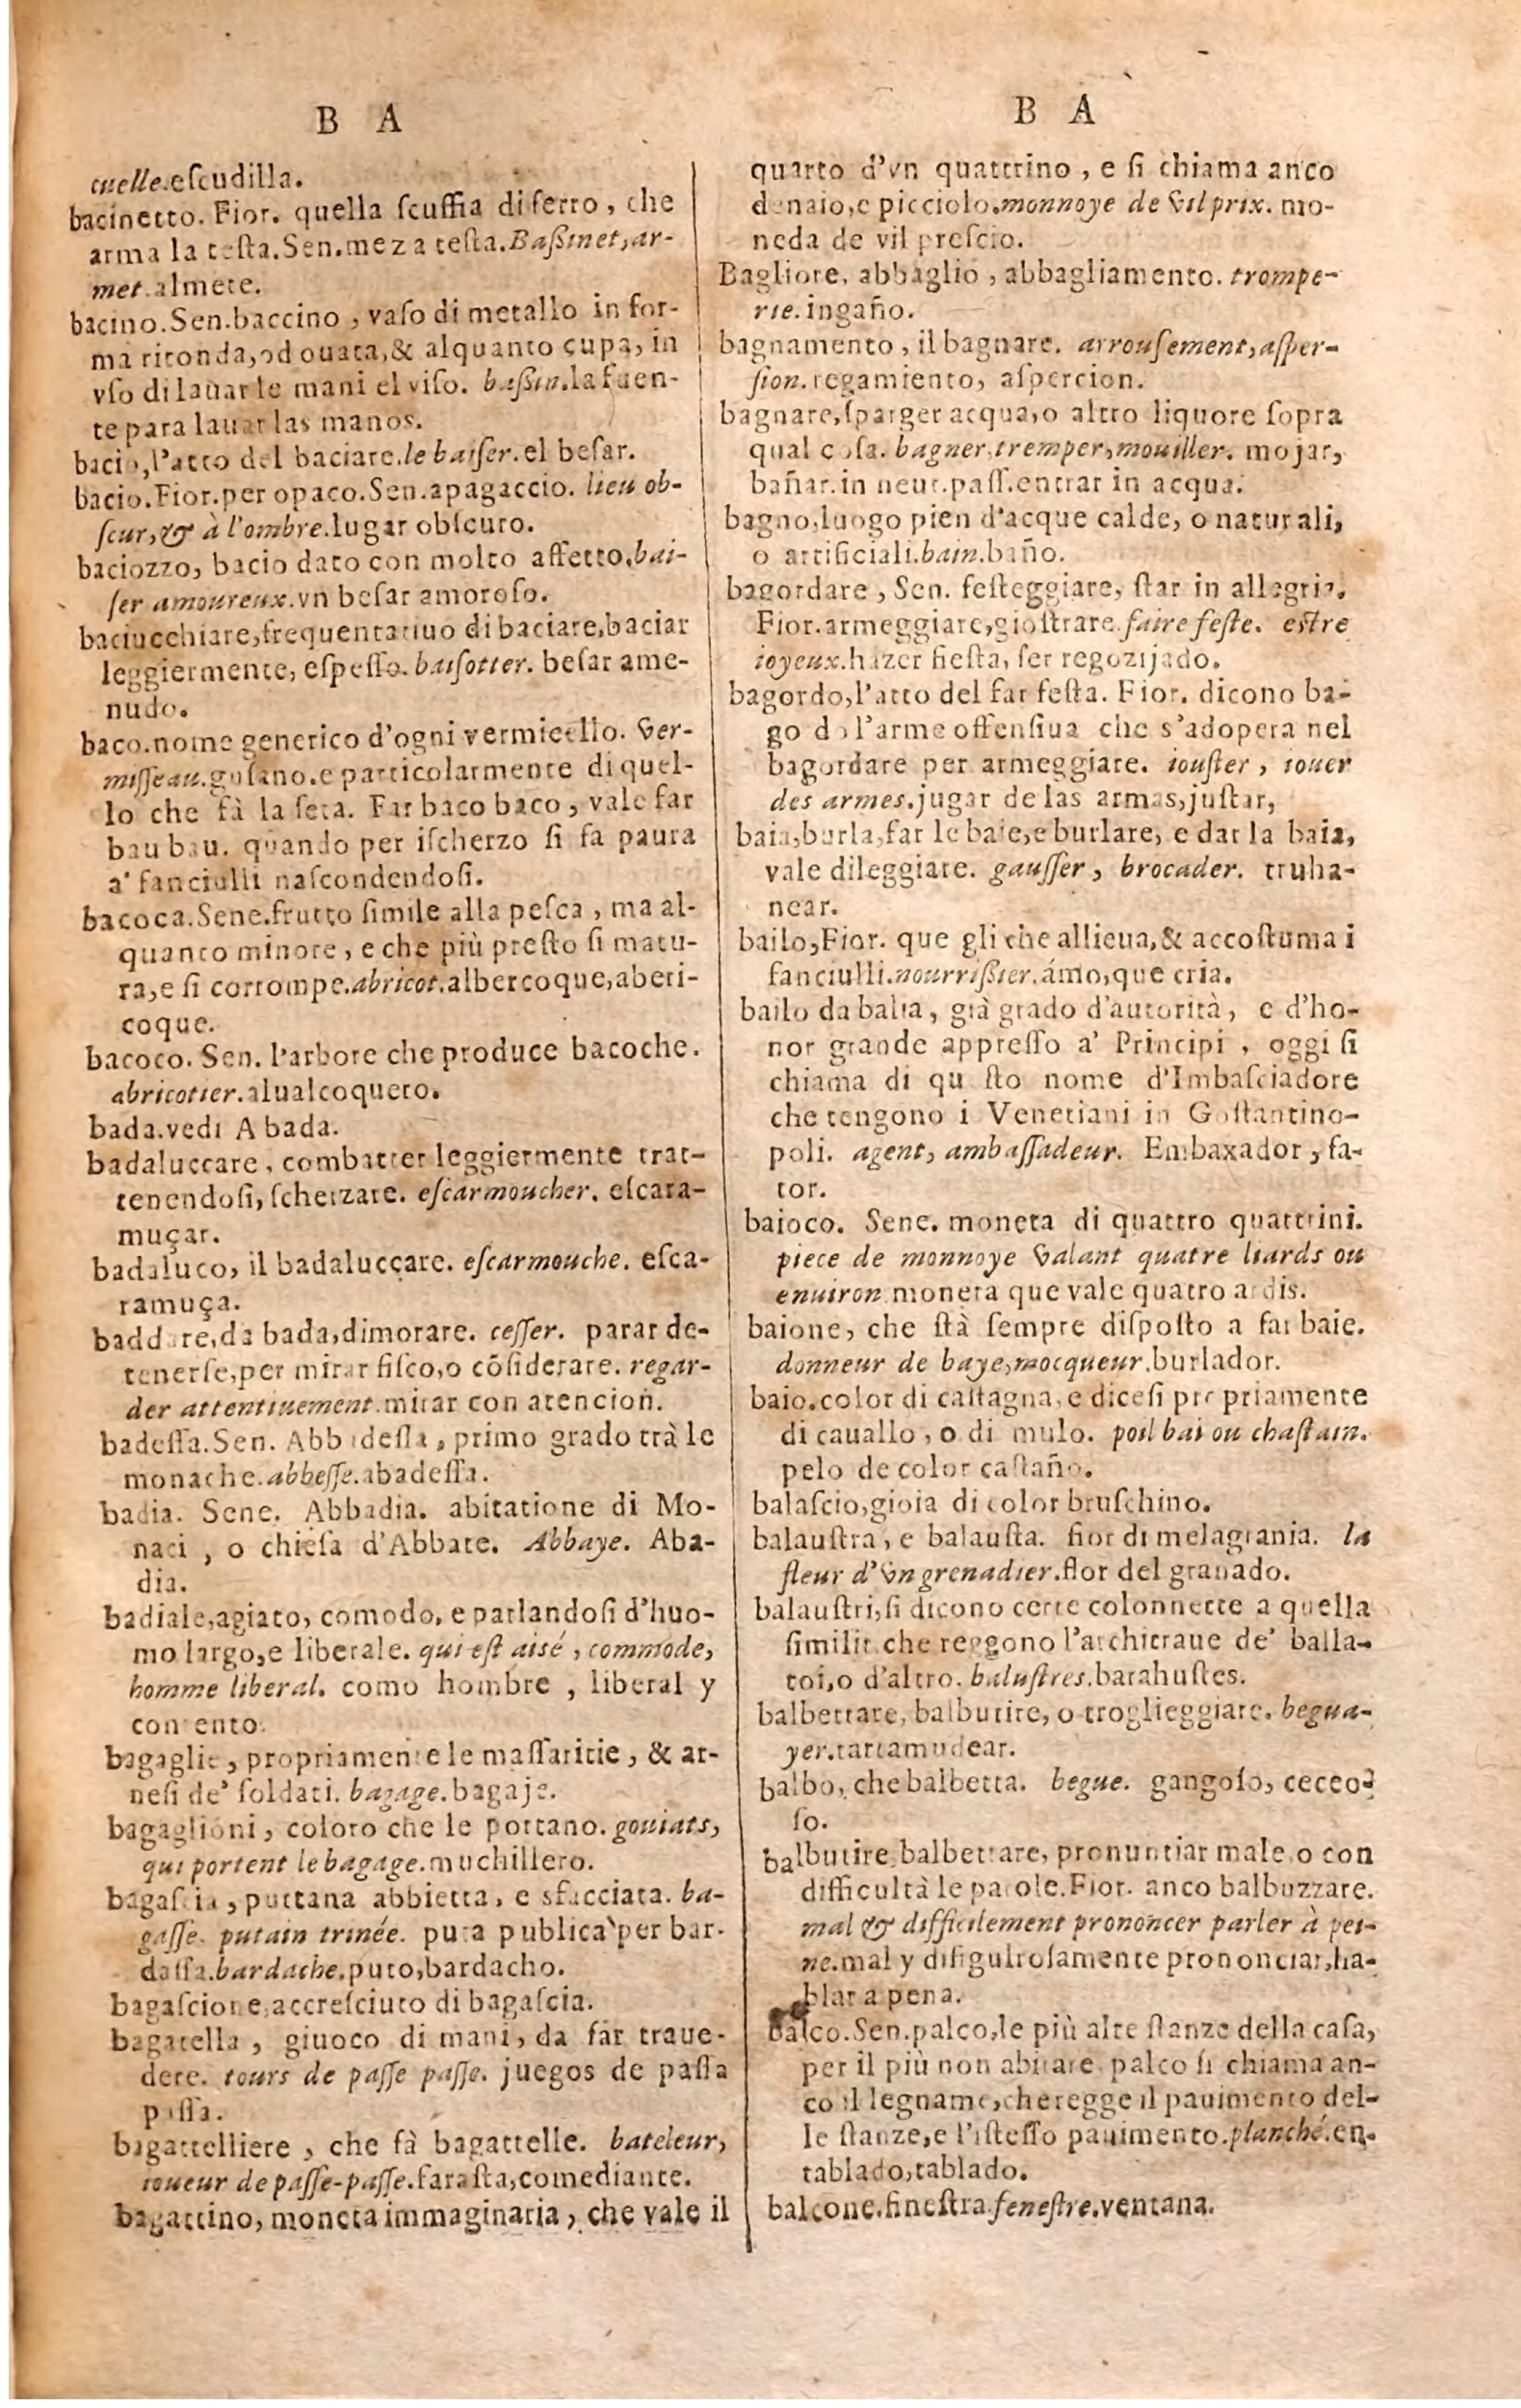 B A
cuelle.eſcudilla.
bacinetto. Fior. quella ſcuffia di ferro, che
arma la teſta.Sen.meza teſta.Baßinet,ar-
met.almete.
bacino.Sen.baccino, vaſo di metallo in for-
ma ritonda,od ouata,& alquanto cupa, in
vſo di lauar le mani el viſo. baßin.la fuen-
te para lauar las manos.
bacio,l'atto del baciare.le baiſer.el beſar.
bacio.Fior.per opaco.Sen.apagaccio. lieu ob-
ſcur,& à l'ombre.lugar obſcuro.
baciozzo, bacio dato con molto affetto.bai-
ſer amoureux.vn beſar amoroſo.
baciucchiare,frequentatiuo di baciare,baciar
leggiermente, eſpeſſo. baiſotter. beſar ame-
nudo.
baco.nome generico d'ogni vermicello. Ver-
miſſeau.guſano.e particolarmente di quel-
lo che fà la ſeta. Far baco baco, vale far
bau bau. quando per iſcherzo ſi fa paura
a' fanciulli naſcondendoſi.
bacoca.Sene.frutto ſimile alla peſca, ma al-
quanto minore, e che più preſto ſi matu-
ra,e ſi corrompe.abricot.albercoque,aberi-
coque.
bacoco. Sen. l'arbore che produce bacoche.
abricotier.alualcoquero.
bada.vedi A bada.
badaluccare, combatter leggiermente trat-
tenendoſi, ſcherzare. eſcarmoucher. eſcara-
muçar.
badaluco, il badaluccare. eſcarmouche. eſca-
ramuça.
baddare,da bada,dimorare. ceſſer. parar de-
tenerſe,per mirar fiſco,o cõſiderare. regar-
der attentiuement.mirar con atencion.
badeſſa.Sen. Abbadeſſa, primo grado trà le
monache.abbeſſe.abadeſſa.
badia. Sene. Abbadia. abitatione di Mo-
naci, o chieſa d'Abbate. Abbaye. Aba-
dia.
badiale,agiato, comodo, e parlandoſi d'huo-
mo largo,e liberale. qui eſt aisé, commode,
homme liberal. como hombre, liberal y
contento.
bagaglie, propriamente le maſſaritie, & ar-
neſi de' ſoldati. bagage.bagaje.
bagaglioni, coloro che le portano. gouiats,
qui portent le bagage.muchillero.
bagaſcia, puttana abbietta, e sfacciata. ba-
gaſſe. putain trinée. puta publica per bar-
daſſa.bardache.puto,bardacho.
bagaſcione,accreſciuto di bagaſcia.
bagatella, giuoco di mani, da far traue-
dere. tours de paſſe paſſe. juegos de paſſa
paſſa.
bagattelliere, che fà bagattelle. bateleur,
ioueur de paſſe-paſſe.faraſta,comediante.
bagattino, moneta immaginaria, che vale il
B A
quarto d'vn quattrino, e ſi chiama anco
denaio,e picciolo.monnoye de Vil prix. mo-
neda de vil preſcio.
Bagliore, abbaglio, abbagliamento. trompe-
rie.ingaño.
bagnamento, il bagnare. arrouſement,aſper-
ſion.regamiento, aſpercion.
bagnare,ſparger acqua,o altro liquore ſopra
qual coſa. bagner,tremper,mouiller. mojar,
bañar.in neut.paſſ.entrar in acqua.
bagno,luogo pien d'acque calde, o naturali,
o artificiali.bain.baño.
bagordare, Sen. feſteggiare, ſtar in allegria.
Fior.armeggiare,gioſtrare.faire feſte. eſtre
ioyeux.hazer fieſta, ſer regozijado.
bagordo,l'atto del far feſta. Fior. dicono ba-
gordo l'arme offenſiua che s'adopera nel
bagordare per armeggiare. iouſter, iouer
des armes.jugar de las armas,juſtar,
baia,burla,far le baie,e burlare, e dar la baia,
vale dileggiare. gauſſer, brocader. truha-
near.
bailo,Fior. que gli che allieua,& accoſtuma i
fanciulli.nourrißier.ámo,que cria.
bailo da balia, già grado d'autorità, e d'ho-
nor grande appreſſo a' Principi, oggi ſi
chiama di queſto nome d'Imbaſciadore
che tengono i Venetiani in Goſtantino-
poli. agent, ambaſſadeur. Embaxador, fa-
tor.
baioco. Sene. moneta di quattro quattrini.
piece de monnoye Valant quatre liards ou
enuiron.moneta que vale quatro ardis.
baione, che ſtà ſempre diſpoſto a far baie.
donneur de baye,mocqueur.burlador.
baio.color di caſtagna,e diceſi propriamente
di cauallo, o di mulo. poil bai ou chaſtain.
pelo de color caſtaño.
balaſcio,gioia di color bruſchino.
balauſtra, e balauſta. fior di melagrania. la
fleur d'Vn grenadier.flor del granado.
balauſtri,ſi dicono certe colonnette a quella
ſimilit. che reggono l'architraue de' balla-
toi,o d'altro. baluſtres.barahuſtes.
balbettare, balbutire, o troglieggiare. begua-
yer.tartamudear.
balbo, che balbetta. begue. gangoſo, ceceo-
ſo.
balbutire,balbettare, pronuntiar male,o con
difficultà le parole.Fior. anco balbuzzare.
mal & difficilement prononcer parler à pei-
ne.mal y difigulroſamente prononciar,ha-
blar a pena.
Balco.Sen.palco,le più alte ſtanze della caſa,
per il più non abitate. palco ſi chiama an-
co il legname,che regge il pauimento del-
le ſtanze,e l'iſteſſo pauimento.planché.en-
tablado,tablado.
balcone.fineſtra.feneſtre.ventana.